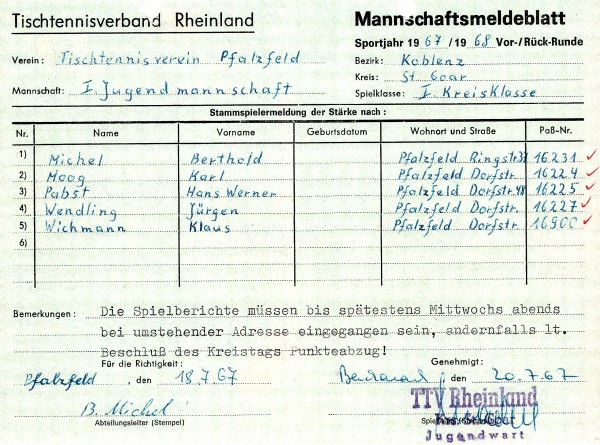 Tischtennisverband Rheinland
Mannschaftsmeldeblatt
Sportjahr 1967/1968 Vor-/Rück-Runde
Verein: Tischtennisverein Pfalzfeld
Bezirk: Koblenz
Kreis: St. Goar
Mannschaft: I. Jugendmannschaft
Spielklasse: I. Kreisklasse
Stammspielermeldung der Stärke nach:
Nr. Name Vorname Geburtsdatum Wohnort und Straße Paß-Nr.
1) Michel Berthold Pfalzfeld Ringstr. 16231
2) Moog Karl Pfalzfeld Dorfstr. 16224
3) Pabst Hans Werner Pfalzfeld Dorfstr. 16225
4) Wendling Jürgen Pfalzfeld Dorfstr. 16227
5) Wichmann Klaus Pfalzfeld Dorfstr. 16900
6)
Bemerkungen: Die Spielberichte müssen bis spätestens Mittwochs abends
bei umstehender Adresse eingegangen sein, andernfalls lt.
Beschluß des Kreistags Punkteabzug!
Für die Richtigkeit:
Genehmigt:
Pfalzfeld, den 18.7.67
, den 20.7.67
B. Michel
Abteilungsleiter (Stempel)
TTV Rheinland
Jugendwart